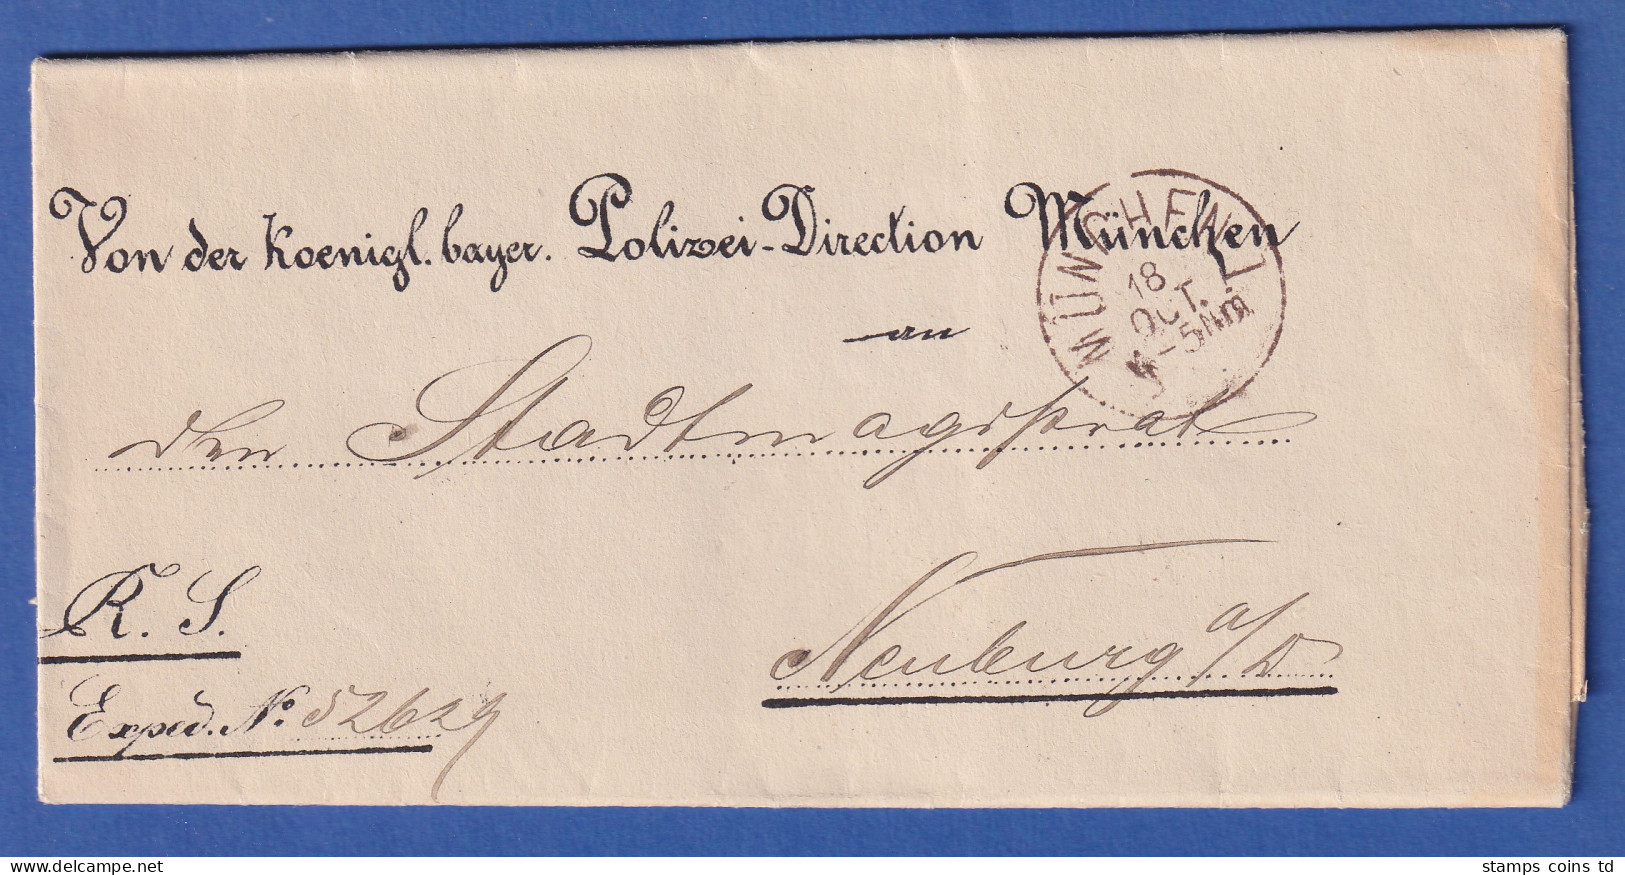 Von der Koenigl. bayer. Polizei-Direction München
MÜNCHEN I
18
OCT.
4-5 Nm
an
den Stadtmagistrat
R. S.
Neuburg a/D
Exped. No. 52629
www.delcampe.net
stamps coins td